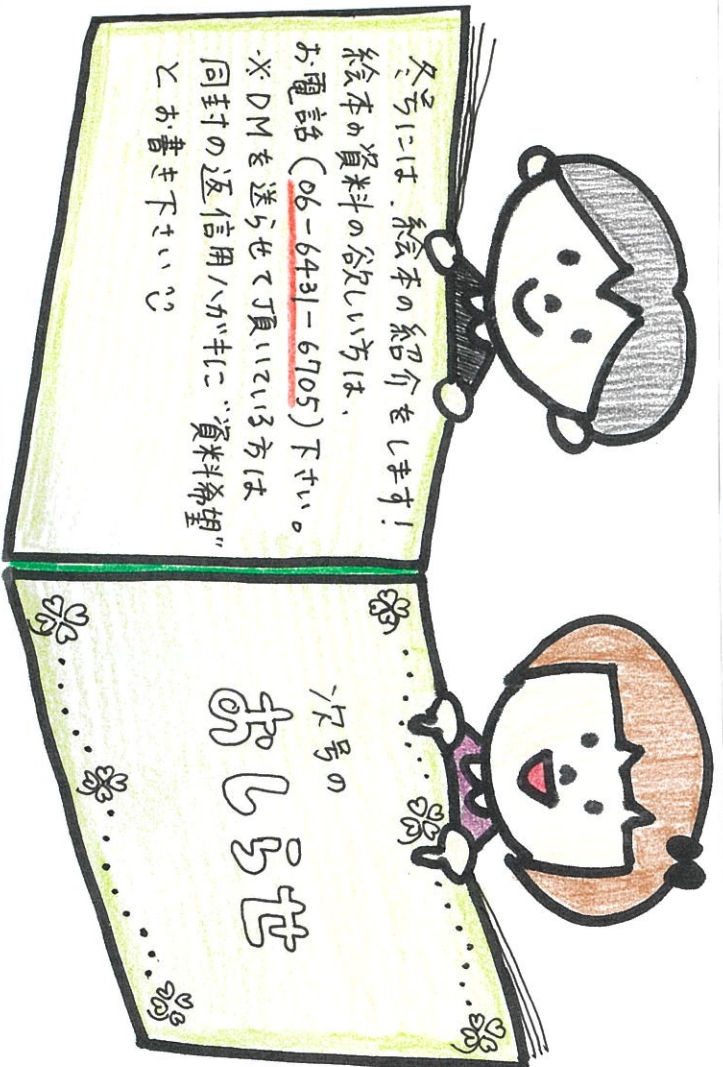 次号の
おしらせ
冬号には、絵本の紹介をします!
絵本の資料の欲しい方は、
お電話(06-6431-6705)下さい。
※DMを送らせて頂いている方は
同封の返信用ハガキに“資料希望”
とお書き下さい